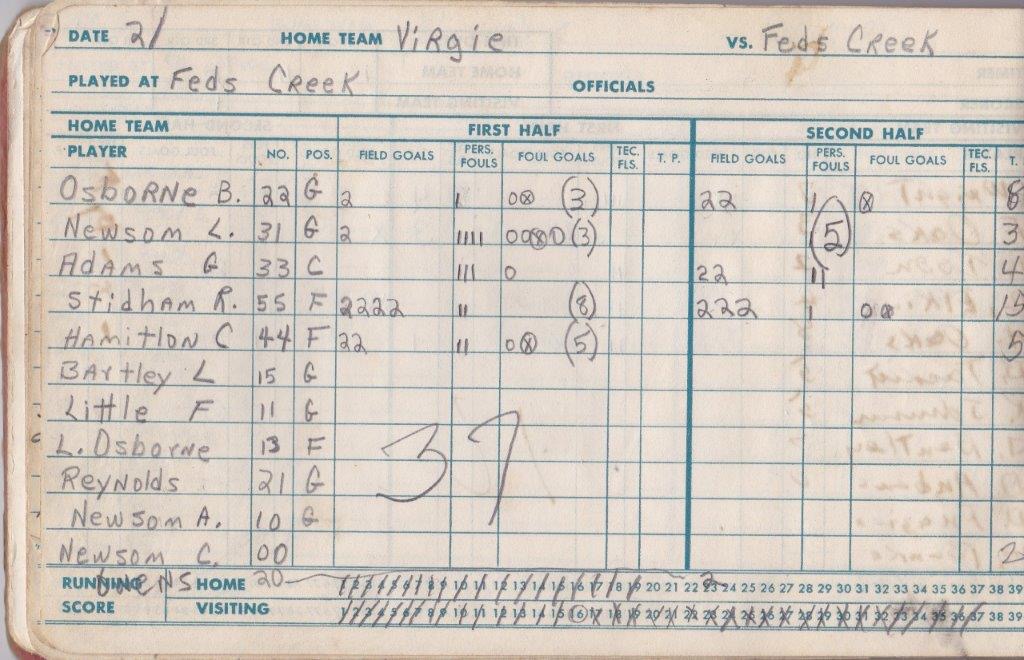 DATE 2/ HOME TEAM Virgie VS. Feds Creek
PLAYED AT Feds Creek OFFICIALS
HOME TEAM FIRST HALF SECOND HALF
PLAYER NO. POS. FIELD GOALS PERS. FOULS FOUL GOALS TEC. FLS. T. P. FIELD GOALS PERS. FOULS FOUL GOALS TEC. FLS. T.
Osborne B. 22 G 2 I 0⊗ (3) 22 I ⊗ 8
Newsom L. 31 G 2 IIII (3) (5) 3
Adams G 33 C III 0 22 II 4
Stidham R. 55 F 2222 II (8) 222 I 15
Hamitlon C 44 F 22 II 0⊗ (5) 5
Bartley L 15 G
Little F 11 G
L. Osborne 13 F
Reynolds 21 G
37
Newsom A. 10 G
Newsom C. 00 2
Owens 20 2
RUNNING SCORE HOME 1 2 3 4 5 6 7 8 9 10 11 12 13 14 15 16 17 18 19 20 21 22 23 24 25 26 27 28 29 30 31 32 33 34 35 36 37 38 39
VISITING 1 2 3 4 5 6 7 8 9 10 11 12 13 14 15 16 17 18 19 20 21 22 23 24 25 26 27 28 29 30 31 32 33 34 35 36 37 38 39